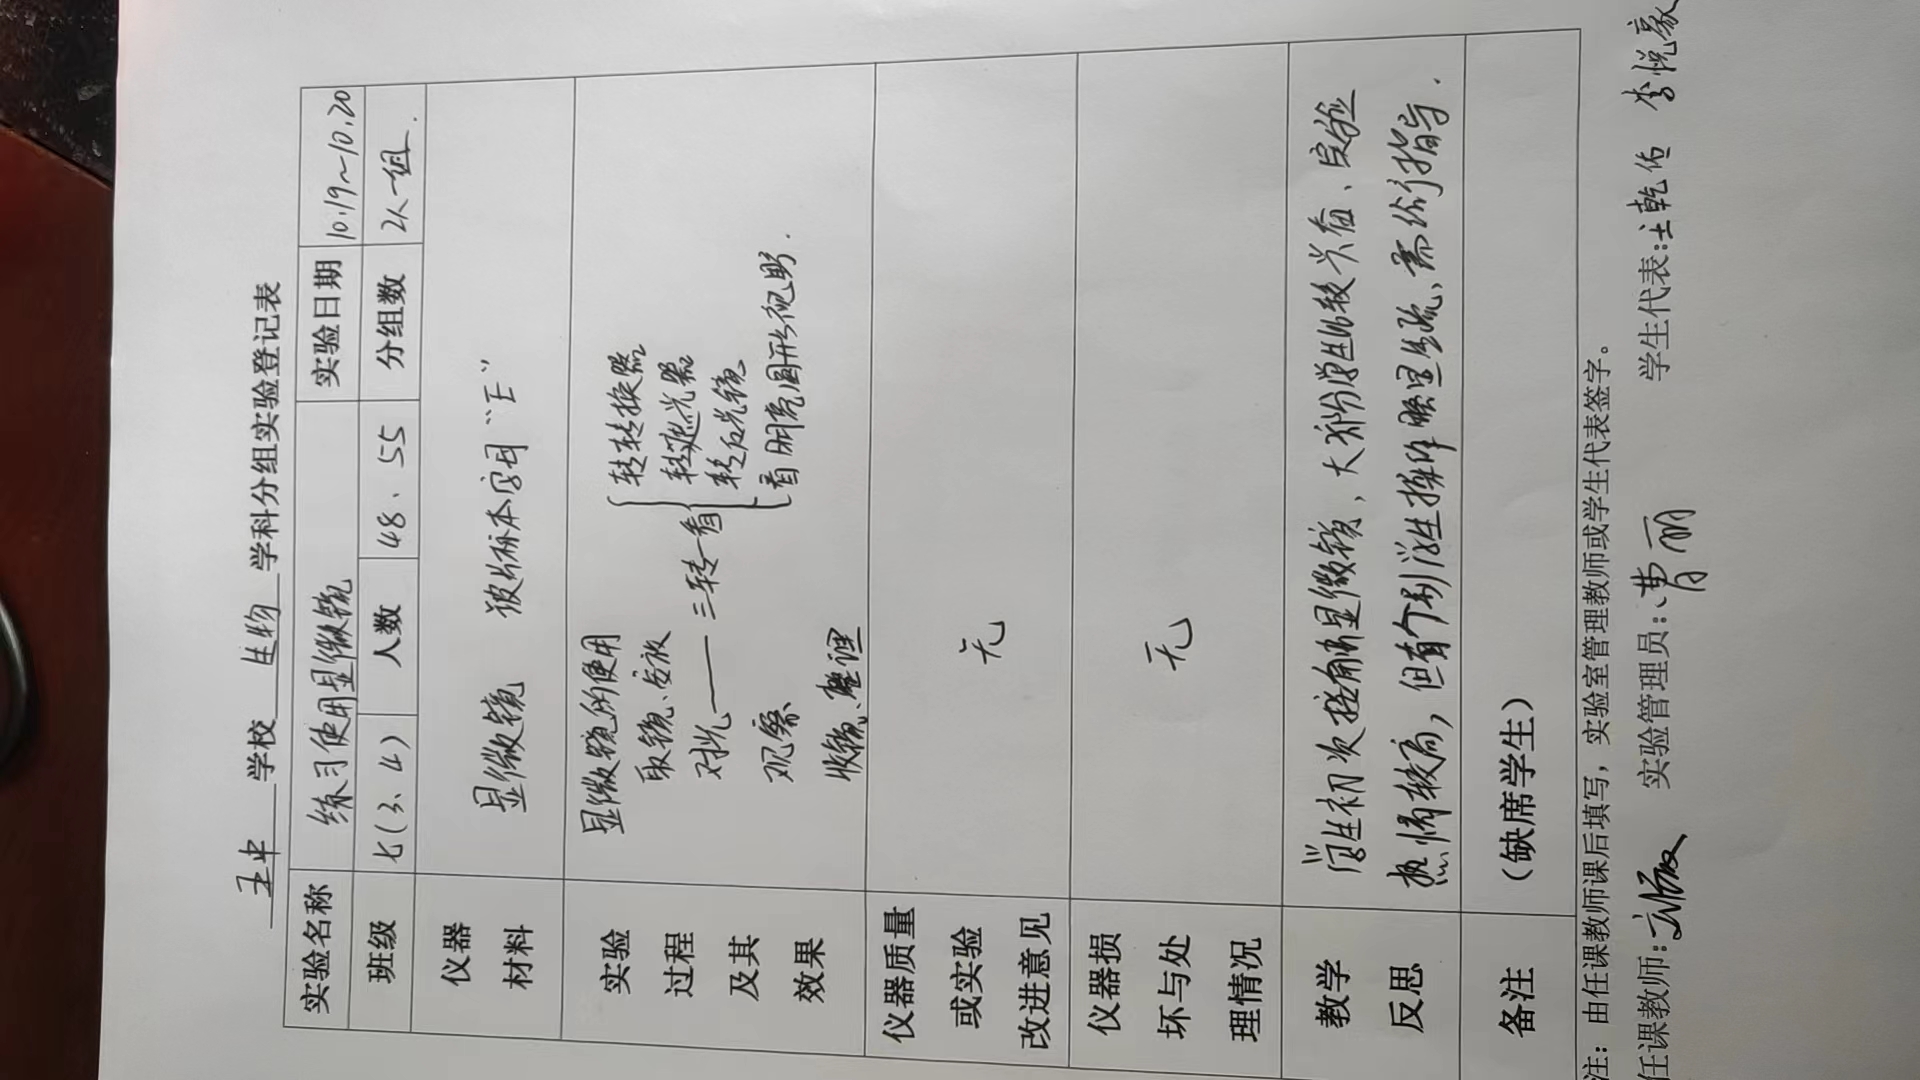 王中 学校 生物 学科分组实验登记表
实验名称 练习使用显微镜 实验日期 10.19~10.20
班级 七(3、4) 人数 48、55 分组数 2人一组.
仪器材料 显微镜 玻片标本字母“E”
实验过程及其效果
显微镜的使用
取镜、安放
对光——三转一看
转转换器
转遮光器
转反光镜
看明亮圆形视野.
观察
收镜、整理
仪器质量或实验改进意见 无
仪器损坏与处理情况 无
教学反思 学生初次接触显微镜，大部分学生比较兴奋、实验
热情较高，但有个别学生操作略显生疏、需个别指导.
备注 （缺席学生）
注：由任课教师课后填写，实验室管理教师或学生代表签字。
任课教师: 刘敏 实验管理员: 曹丽 学生代表: 王乾佑 李悦豪